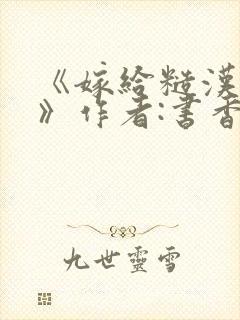 《嫁給糙漢
》作者:書香
九世靈雪